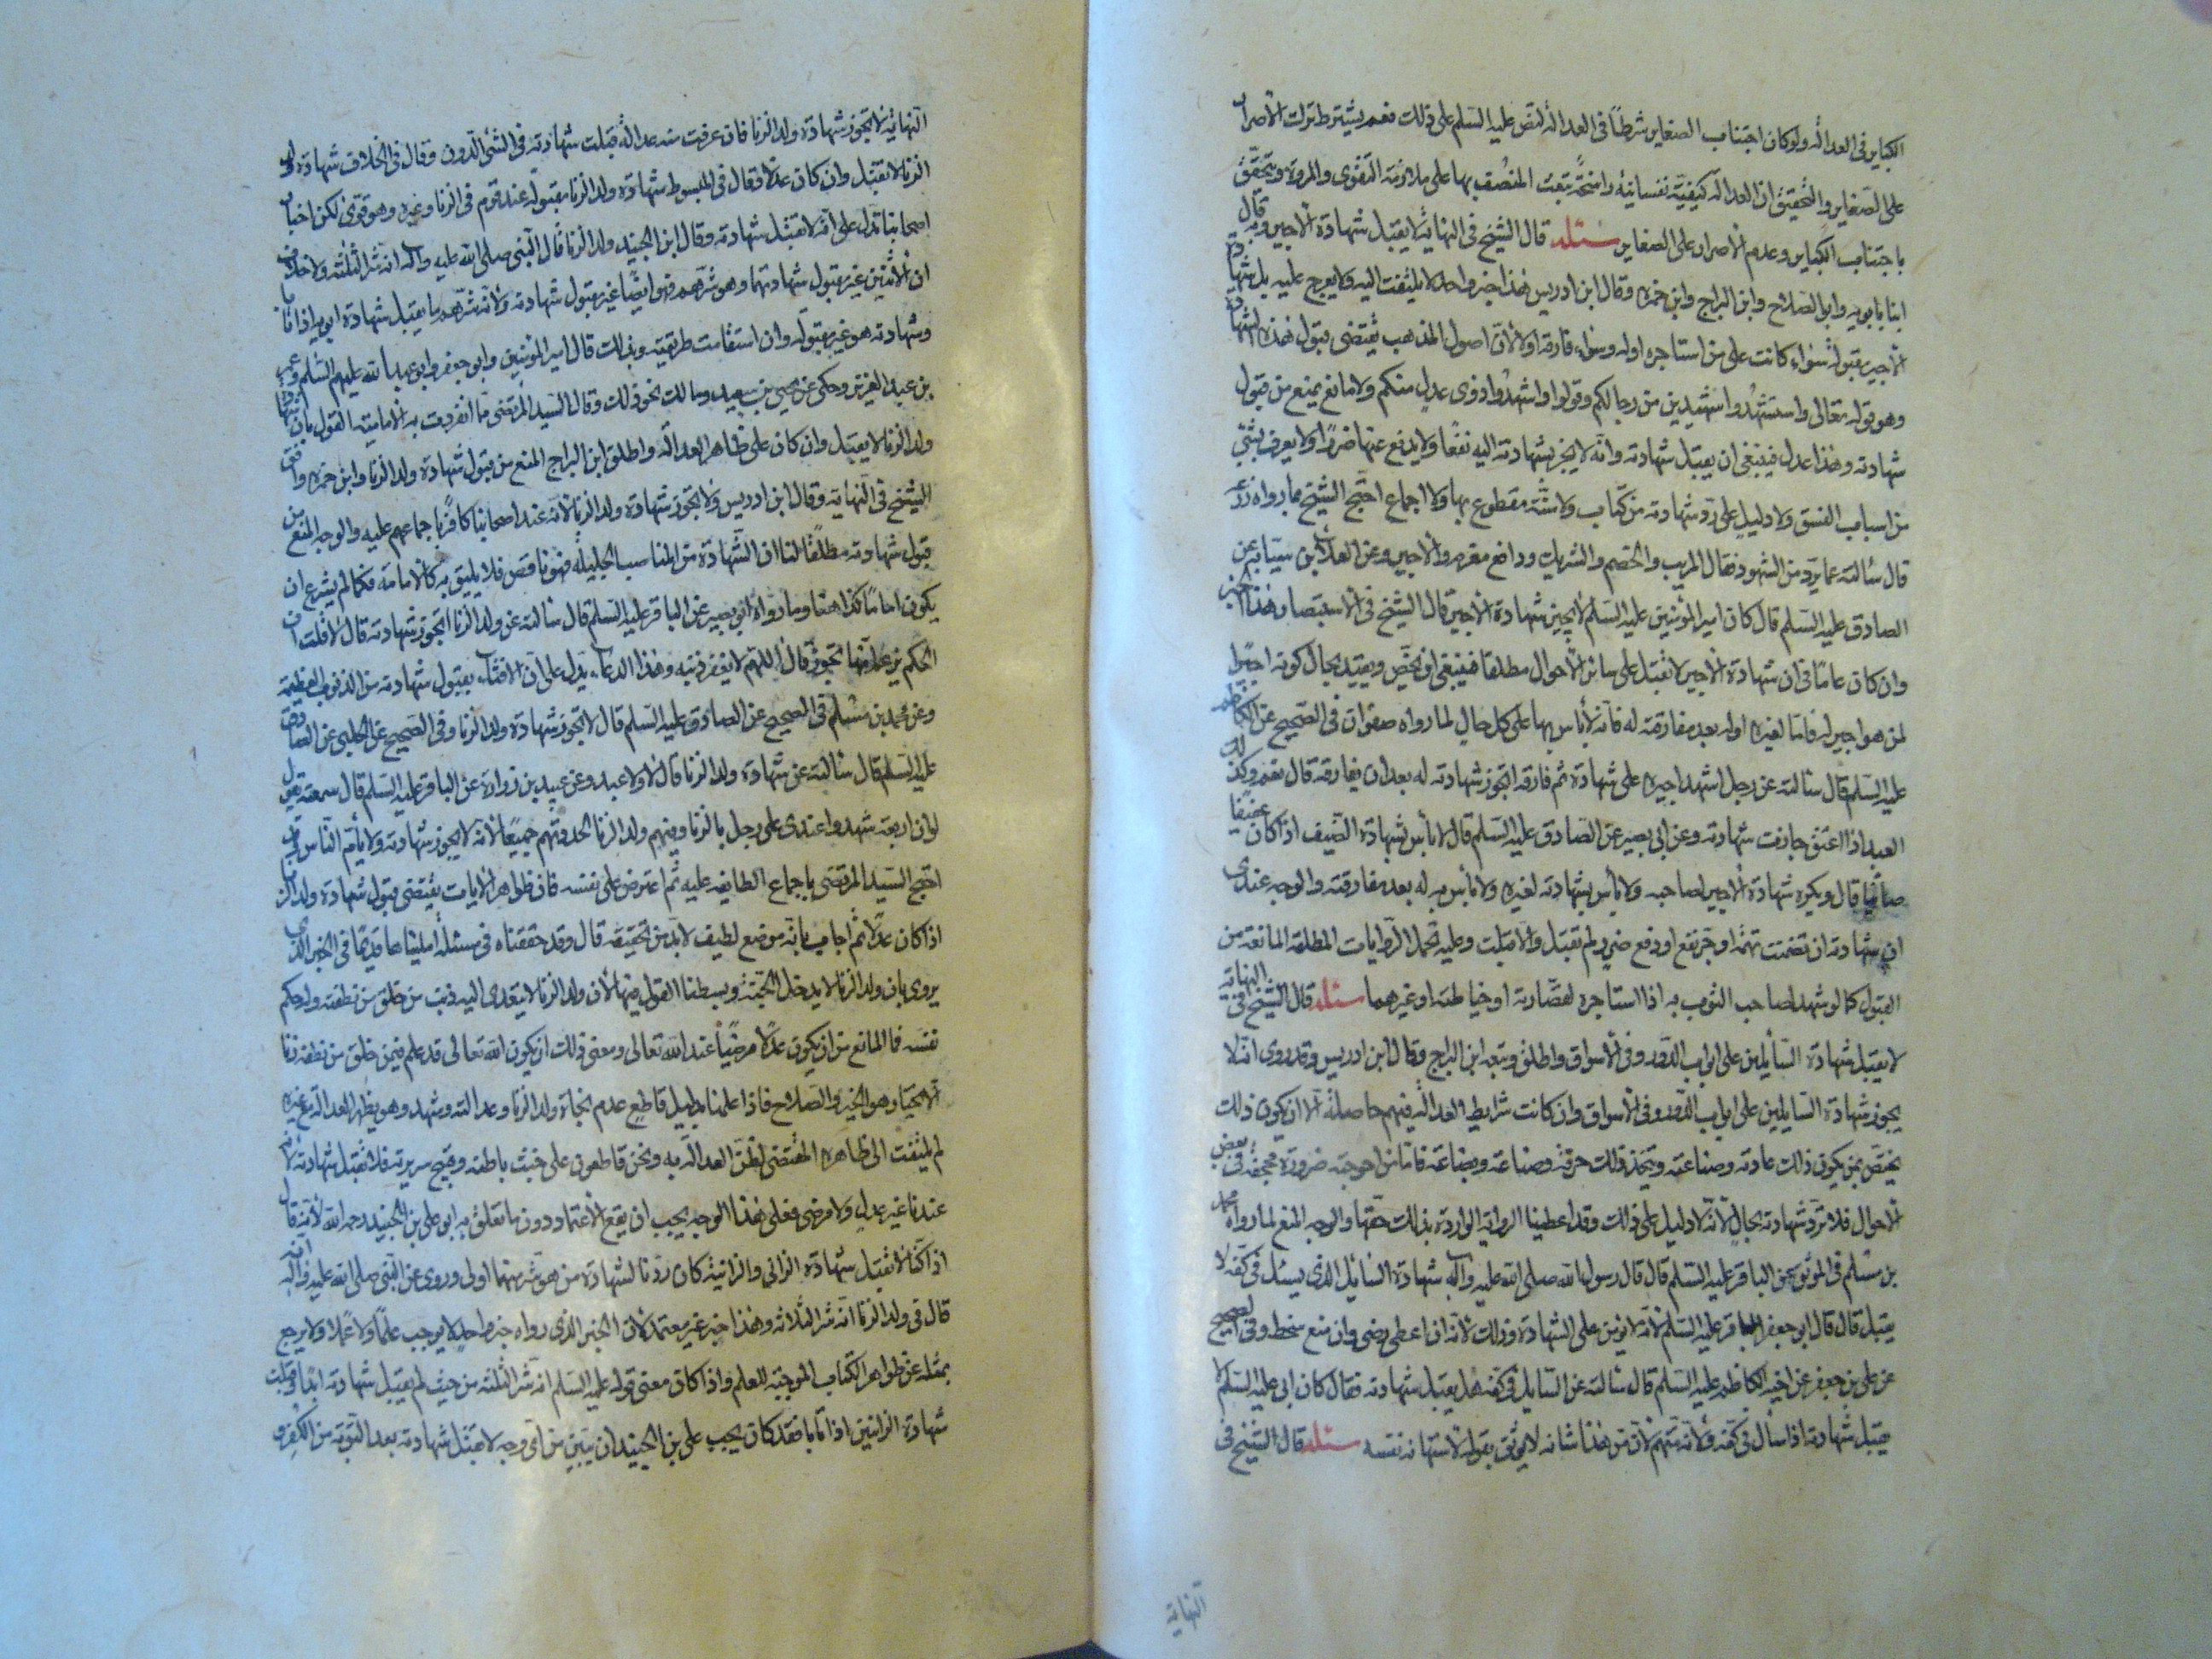 الكباير في العدالة ولو كان اجتناب الصغاير شرطا في العدالة لنص عليه السلم على ذلك نعم يشترط ترك الاصرار
على الصغاير والتحقيق ان العدالة كيفية نفسانية راسخة تبعث المتصف بها على ملازمة التقوى والمروة ويتحقق
باجتناب الكباير وعدم الاصرار على الصغاير مسئله قال الشيخ في النهاية لا يقبل شهادة الاجير وبه قال
ابنا بابويه وابو الصلاح وابن البراج وابن حمزه وقال ابن ادريس هذا خبر واحد لا يلتفت اليه ولا يعرج عليه بل شهادة
الاجير مقبولة سواء كانت على من استاجره اوله وسواء فارقه اولا لان اصول المذهب يقتضى قبول هذه الشهادة
وهو قوله تعالى واستشهدوا شهيدين من رجالكم وقوله واشهدوا ذوى عدل منكم ولا مانع يمنع من قبول
شهادته وهذا عدل فينبغى ان يقبل شهادته وانه لا يجر بشهادته اليه نفعا ولا يدفع عنها ضررا ولا يعرف بشئ
من اسباب الفسق ولا دليل على رد شهادته من كتاب ولا سنة مقطوع بها ولا اجماع احتج الشيخ بما رواه زرعه
قال سئالته عما يرد من الشهود فقال المريب والخصم والشريك ودافع مغرم والاجير وعن العلاء بن سيابه عن
الصادق عليه السلم قال كان امير المؤمنين عليه السلم لا يجيز شهادة الاجير قال الشيخ في الاستبصار وهذا الخبر
وان كان عاما في ان شهادة الاجير لا تقبل على سائر الاحوال مطلقا فينبغى ان يخص ويقيد بحال كونه اجيرا
لمن هو اجير له فاما لغيره اوله بعد مفارقته له فانه لا باس بها على كل حال لما رواه صفوان في الصحيح عن الكاظم
عليه السلم قال سئالته عن رجل اشهد اجيره على شهادة ثم فارقه اتجوز شهادته له بعد ان يفارقه قال نعم وكذلك
العبد اذا اعتق جازت شهادته وعن ابى بصير عن الصادق عليه السلم قال لا باس بشهادة الضيف اذا كان عفيفا
صائنا قال ويكره شهادة الاجير لصاحبه ولا باس بشهادته لغيره ولا باس به له بعد مفارقته والوجه عندى
ان شهادته ان تضمنت تهمة او جر نفع او دفع ضرر لم تقبل والا قبلت وعليه تحمل الروايات المطلقة المانعة من
القبول كما لو شهد لصاحب الثوب به اذا استاجره لقصارته او خياطته او غيرهما مسئله قال الشيخ في النهاية
لا يقبل شهادة السائلين على ابواب الدور وفي الاسواق واطلق وتبعه ابن البراج وقال ابن ادريس وقد روى انه لا
يجوز شهادة السايلين على ابواب الدور وفي الاسواق وان كانت شرايط العدالة فيهم حاصلة الا ان يكون ذلك
يختص بمن يكون ذلك عادته وصناعته ويتخذ ذلك حرفة وصناعة وبضاعة فاما من احوجته ضرورة مجحفة في بعض
الاحوال فلا ترد شهادته بحال لانه لا دليل على ذلك وقد اعطينا الرواية الواردة بذلك حقها والوجه المنع لما رواه محمد
بن مسلم في الموثق عن الباقر عليه السلم قال قال رسول الله صلى الله عليه وآله شهادة السائل الذى يسئل في كفه لا
يقبل قال قال ابو جعفر الباقر عليه السلم لانه لا يؤمن على الشهادة وذلك لانه ان اعطى رضى وان منع سخط وفي الصحيح
عن على بن جعفر عن اخيه الكاظم عليه السلم قال سئالته عن السايل في كفه هل يقبل شهادته فقال كان ابى عليه السلم لا
يقبل شهادته اذا سأل في كفه ولانه متهم لان من هذا شانه لا يوثق بقوله لاستهانه نفسه مسئله قال الشيخ في
النهايه
النهاية لا تجوز شهادة ولد الزنا فان عرفت منه عدالة قبلت شهادته في الشئ الدون وقال في الخلاف شهادة ولد
الزنا لا تقبل وان كان عدلا وقال في المبسوط شهادة ولد الزنا مقبولة عند قوم في الزنا وغيره وهو قوى لكن اخبار
اصحابنا تدل على انه لا تقبل شهادته وقال ابن الجنيد ولد الزنا قال النبى صلى الله عليه وآله انه شر الثلثة ولا خلاف
ان الاثنين غير مقبول شهادتهما وهو شرهم فهو ايضا غير مقبول شهادته ولانه شرهم ما يقبل شهادة ابويه اذا تابا
وشهادته هو غير مقبولة وان استقامت طريقته وبذلك قال امير المؤمنين وابو جعفر وابو عبد الله عليهم السلم وعمر
بن عبد العزيز وحكى عن يحيى بن سعيد ومالك نحو ذلك وقال السيد المرتضى مما انفردت به الامامية القول بان شهادة
ولد الزنا لا يقبل وان كان على ظاهر العدالة واطلق ابن البراج المنع من قبول شهادة ولد الزنا وابن حمزه وافق
الشيخ في النهاية وقال ابن ادريس ولا تجوز شهادة ولد الزنا لانه عند اصحابنا كافر باجماعهم عليه والوجه المنع من
قبول شهادته مطلقا لنا ان الشهادة من المناصب الجليلة فهو ناقص فلا يليق به كالامامة فكما لم يشرع ان
يكون اماما كذا هنا وما رواه ابى بصير عن الباقر عليه السلم قال سئالته عن ولد الزنا اتجوز شهادته قال لا قلت ان
الحكم يزعم انها تجوز قال اللهم لا تغفر ذنبه وهذا الدعاء يدل على ان الافتاء بقبول شهادته من الذنوب العظيمة
وعن محمد بن مسلم في الصحيح عن الصادق عليه السلم قال لا تجوز شهادة ولد الزنا وفي الصحيح عن الحلبى عن الصادق
عليه السلم قال سئالته عن شهادة ولد الزنا قال لا ولا عبد وعن عبيد بن زرارة عن الباقر عليه السلم قال سمعته يقول
لو ان اربعة شهدوا عندى على رجل بالزنا وفيهم ولد الزنا لحددتهم جميعا لانه لا يجوز شهادته ولا يأم الناس
احتج السيد المرتضى باجماع الطايفه عليه ثم اعترض على نفسه فان ظواهر الايات يقتضى قبول شهادة ولد الزنا
اذا كان عدلا ثم اجاب بانه موضع لطيف لا بد من تحقيقه قال وقد حققناه في مسئلة امليناها قديما في الخبر الذى
يروى بان ولد الزنا لا يدخل الجنة وبسطنا القول فيها لان ولد الزنا لا يتعدى اليه ذنب من خلق من نطفته وله حكم
نفسه فما المانع من ان يكون عدلا مرضيا عند الله تعالى ومعنى ذلك ان يكون الله تعالى قد علم فيمن خلق من نطفه زنا
الا يختار هو الخير والصلاح فاذا علمنا بدليل قاطع عدم نجاة ولد الزنا وعدالته وشهد وهو يظهر العدالة مع غيره
لم يلتفت الى ظاهره المقتضى لظن العدالة به ونحن قاطعون على خبث باطنه وقبح سريرته فلا تقبل شهادته لانه
عندنا غير عدل ولا مرضى فعلى هذا الوجه يجب ان يقع الاعتماد دون ما تعلق به ابو على بن الجنيد رحمه الله لانه قال
اذا كنا لا نقبل شهادة الزانى والزانية كان ردنا لشهادة من هو شر منهما اولى وروى عن النبى صلى الله عليه وآله انه
قال في ولد الزنا انه شر الثلاثه وهذا خبر غير معتمد لان الخبر الذى رواه خبر واحد لا يوجب علما ولا عملا ولا يرجع
بمثله عن ظواهر الكتاب الموجبة للعلم واذا كان معنى قوله عليه السلم انه شر الثلثه من حيث لم يقبل شهادته ابدا وقبلت
شهادة الزانيين اذا تابا فقد كان يجب على بن الجنيد ان يبين من اى وجه لا تقبل شهادته بعد التوبة من الكفر و